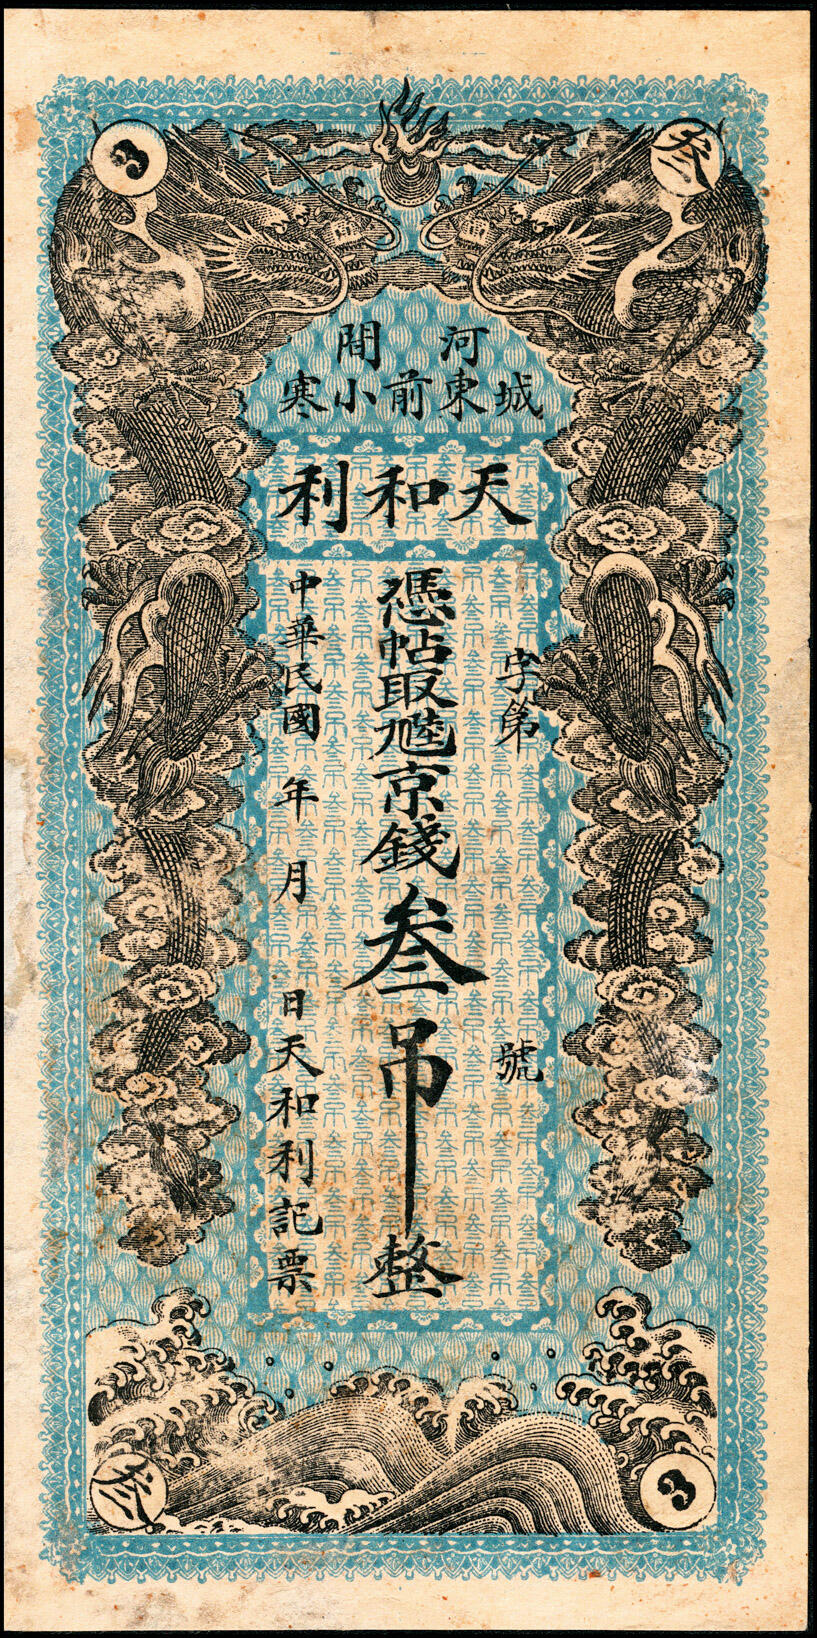 叁
3
河間
城東前小寒
天和利
字第 號
憑帖取京錢叁吊整
中華民國 年 月 日天和利記票
3
叁